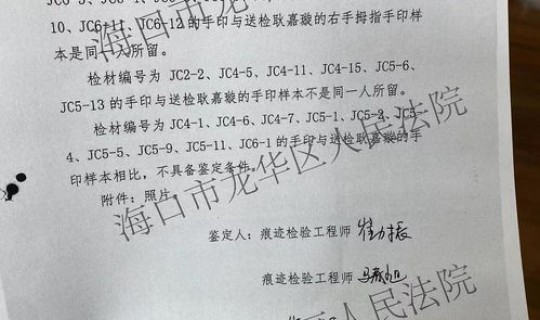 10、JC6-11、JC6-12 的手印与送检耿嘉璇的右手拇指手印样
本是同一人所留。
检材编号为 JC2-2、JC4-5、JC4-11、JC4-15、JC5-6、
JC5-13 的手印与送检耿嘉璇的手印样本不是同一人所留。
检材编号为 JC4-1、JC4-6、JC4-7、JC5-1、JC5-2、JC5-
4、JC5-5、JC5-9、JC5-11、JC6-1 的手印与送检耿嘉璇的手
印样本相比，不具备鉴定条件。
附件：照片
鉴定人：痕迹检验工程师
痕迹检验工程师
海口市龙华区人民法院